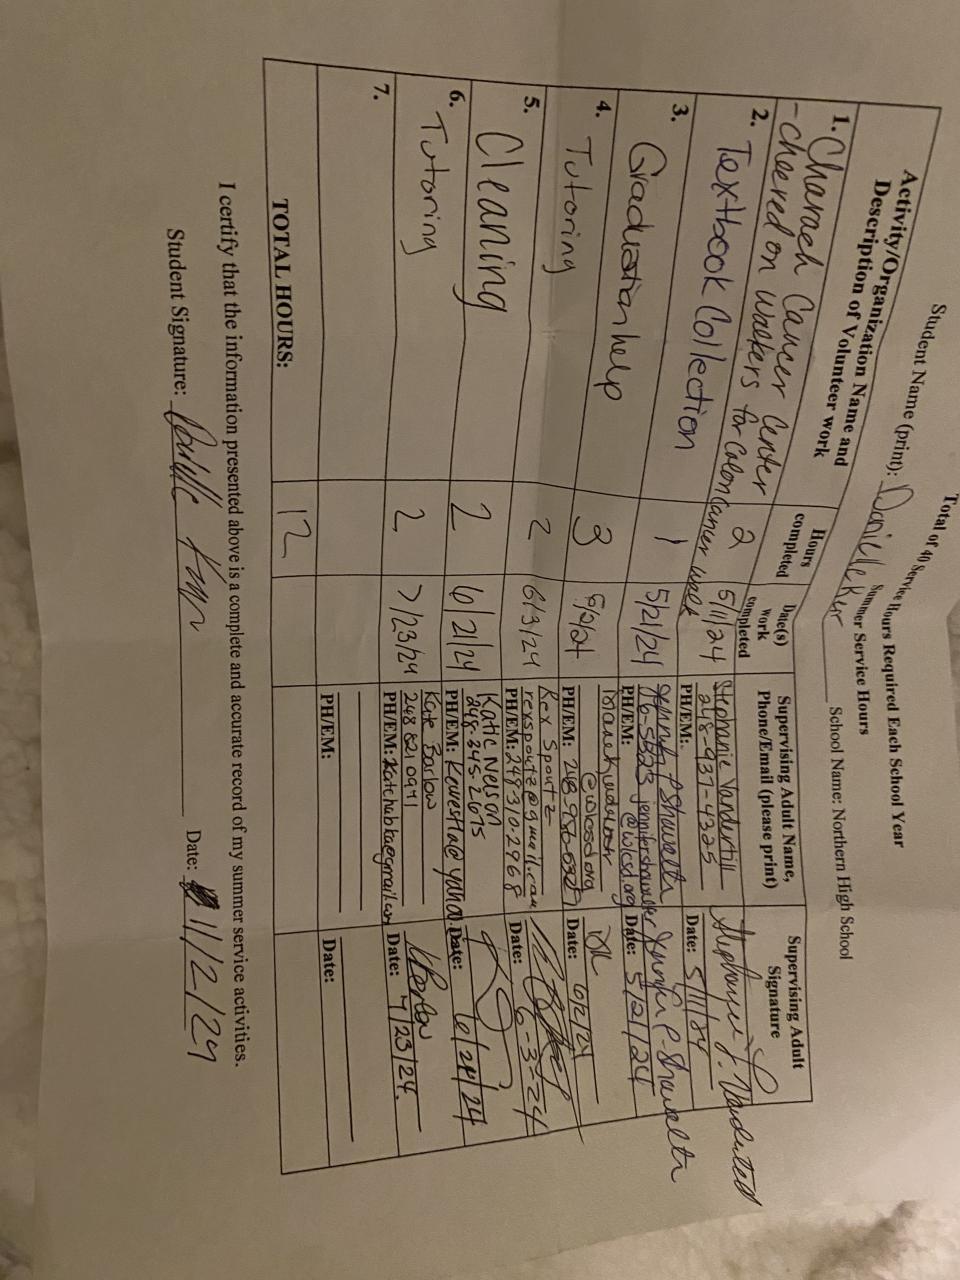 Total of 40 Service Hours Required Each School Year
Summer Service Hours
Student Name (print): Danielle Kerr School Name: Northern High School
Activity/Organization Name and Description of Volunteer work
Hours completed
Date(s) work completed
Supervising Adult Name, Phone/Email (please print)
Supervising Adult Signature
1. Charach Cancer Center
- cheered on walkers for Colon Cancer walk
2
5/11/24
Stephanie Vandertill
248-937-4325
PH/EM:
Date: 5/11/24
2. Textbook Collection
1
5/21/24
PH/EM:
@wbcsd.org
Date: 5/21/24
3. Graduation help
3
@wbcsd.org
PH/EM:
Date: 6/2/24
4. Tutoring
2
6/3/24
Rex Spoutz
rexspoutz@gmail.com
PH/EM: 248 310-2968
Date: 6-3-24
5. Cleaning
2
6/21/24
Katie Nelson
248-345-2675
PH/EM: @yahoo.
Date: 6/21/24
6. Tutoring
2
7/23/24
Kate Barlow
248 821 0941
PH/EM:
Date: 7/23/24.
7.
PH/EM:
Date:
TOTAL HOURS: 12
I certify that the information presented above is a complete and accurate record of my summer service activities.
Student Signature: Date: 11/2/24